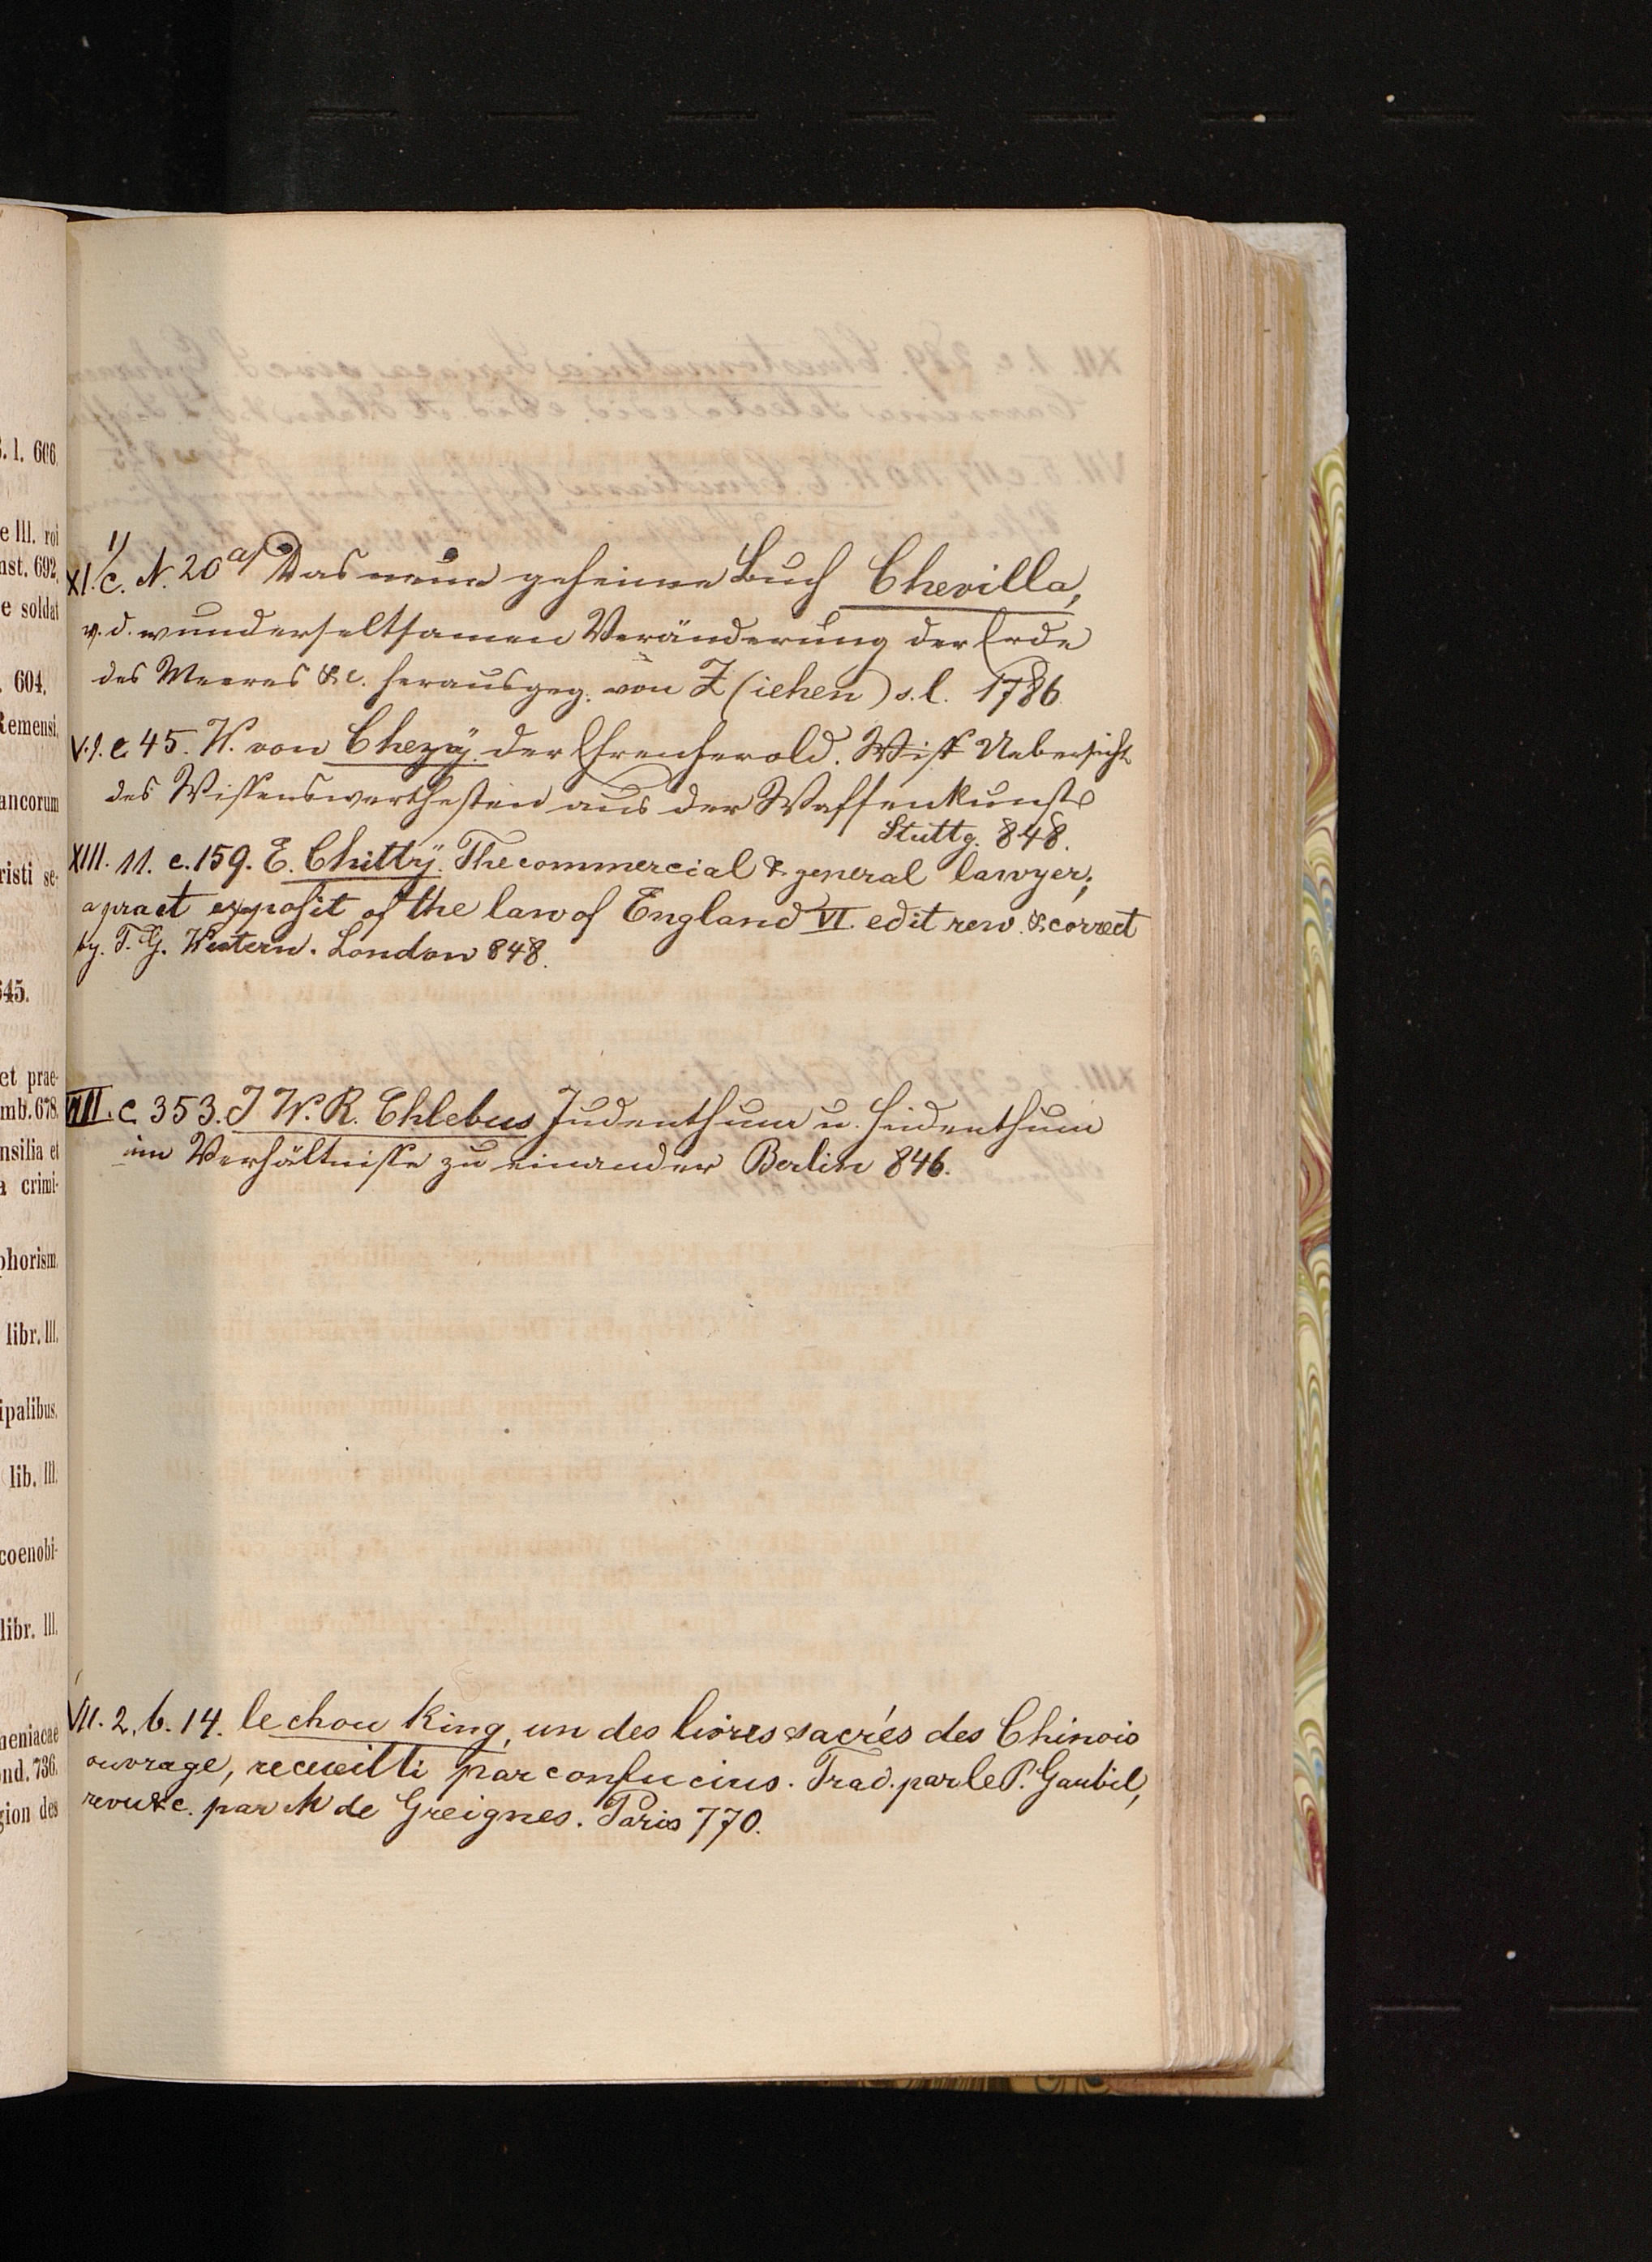 XI. 1/ c. N. 20 a) Das neue geheime Buch Chevilla,
v. d. wunderseltsamen Veränderung der Erde
des Meeres &c. herausgeg. von Z (iehen) s. l. 1786
V. 1. c 45. W. von Chezÿ. der Ehrenherold. Uebersicht
des Wissenswerthesten aus der Waffenkunst
Stuttg. 848.
XIII. 11. c. 159. E. Chittÿ. The commercial & general lawyer;
a pract exposit of the law of England VI. edit rew. & correct
by. T. G. Western. London 848.
VIII. c 353. J W. R. Chlebus Judenthum u. Heidenthum
im Verhältnisse zu einander Berlin 846.
VII. 2. b. 14. le chou King, un des livres sacrés des Chinois
ouvrage, recueilli par confucius. Trad. par le P. Gaubil,
revu &c. par M de Greignes. Paris 770.
S. l. 606.
e III. roi
nst. 692.
e soldat
. 604.
Remensi,
ancorum
risti se-
645.
et prae-
mb. 678.
nsilia et
a crimi-
phorism.
libr. III.
ipalibus.
lib. III.
coenobi-
libr. III.
meniacae
ond. 736.
gion des